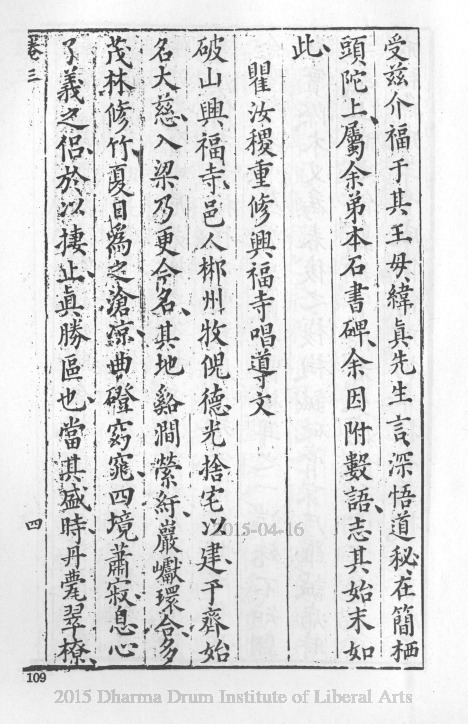 受兹介福于其王母緯真先生言深悟道秘在簡栖
頭陀上屬余弟本石書碑余因附數語志其始末如
此
瞿汝稷重修興福寺唱導文
破山興福寺邑人郴州牧倪德光捨宅以建于齊始
名大慈入梁乃更今名其地谿澗縈紆巖巘環合多
茂林修竹夏日爲之滄凉曲磴窈窕四境蕭寂息心
了義之侣於以棲止真勝區也當其盛時丹甍翠橑
卷三
四
109
2015-04-16
2015 Dharma Drum Institute of Liberal Arts